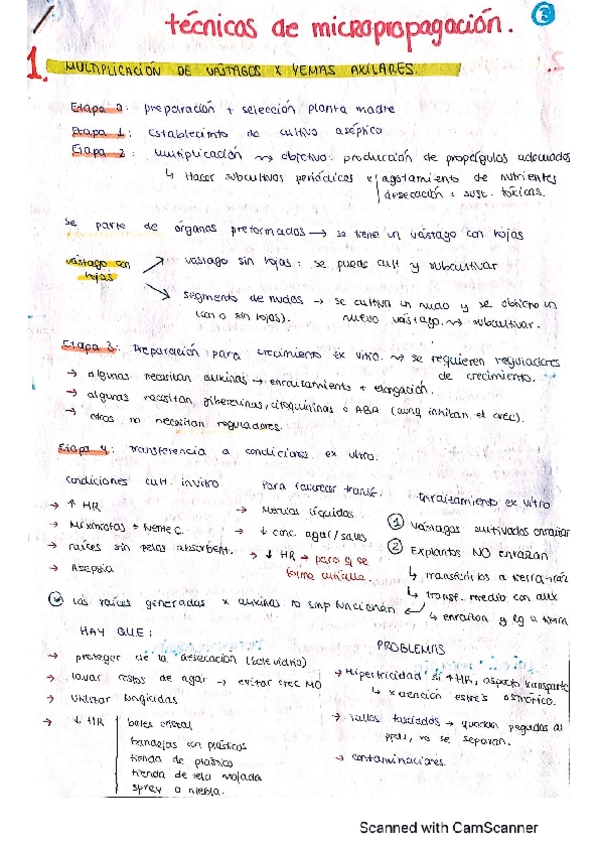 técnicas de micropropagación.
1. MULTIPLICACIÓN DE VÁSTAGOS X YEMAS AXILARES.
Etapa 0: preparación + selección planta madre
Etapa 1: Establecimto de cultivo aséptico
Etapa 2: multiplicación objetivo: producción de propágulos adecuados
↳ Hacer subcultivos periódicos x agotamiento de nutrientes
desecación + sust. tóxicas.
Se parte de órganos preformados → se tiene un vástago con hojas
vástago con hojas
vástago sin hojas: se puede cult y subcultivar
segmento de nudos → se cultiva un nudo y se obtiene un
(con o sin hojas). nuevo vástago. subcultivar.
Etapa 3: Preparación para crecimiento ex vitro. se requieren reguladores
de crecimiento.
→ algunas necesitan auxinas → enraizamiento + elongación.
→ algunas necesitan giberelinas, citoquininas o ABA (aunq inhiban el crec).
→ otras no necesitan reguladores.
Etapa 4: transferencia a condiciones ex vitro.
condiciones cult. invitro
→ ↑ HR
→ raíces sin pelos absorbent.
→ Asepsia
Para favorecer transf.
→ ↓ conc. agar/sales
→ ↓ HR → para q se
forme cutícula.
Enraizamiento ex vitro
① vástagos cultivados enraizan
② Explantos NO enraizan
↳ transferirlos a tierra
↳ transf. medio con aux
↳ enraizan y a tierra
las raíces generadas x auxinas no smp funcionan
HAY QUE:
→ proteger de la desecación
→ lavar restos de agar → evitar crec MO
→ utilizar fungicidas
→ ↓ HR
tienda de plástico
tienda de tela mojada
spray o niebla.
PROBLEMAS
→ Hipertricidad si ↑ HR, aspecto transparte
↳ x atención estrés osmótico.
→ Tallos fasciados → quedan pegados al
ppal, no se separan.
→ contaminaciones.
Scanned with CamScanner